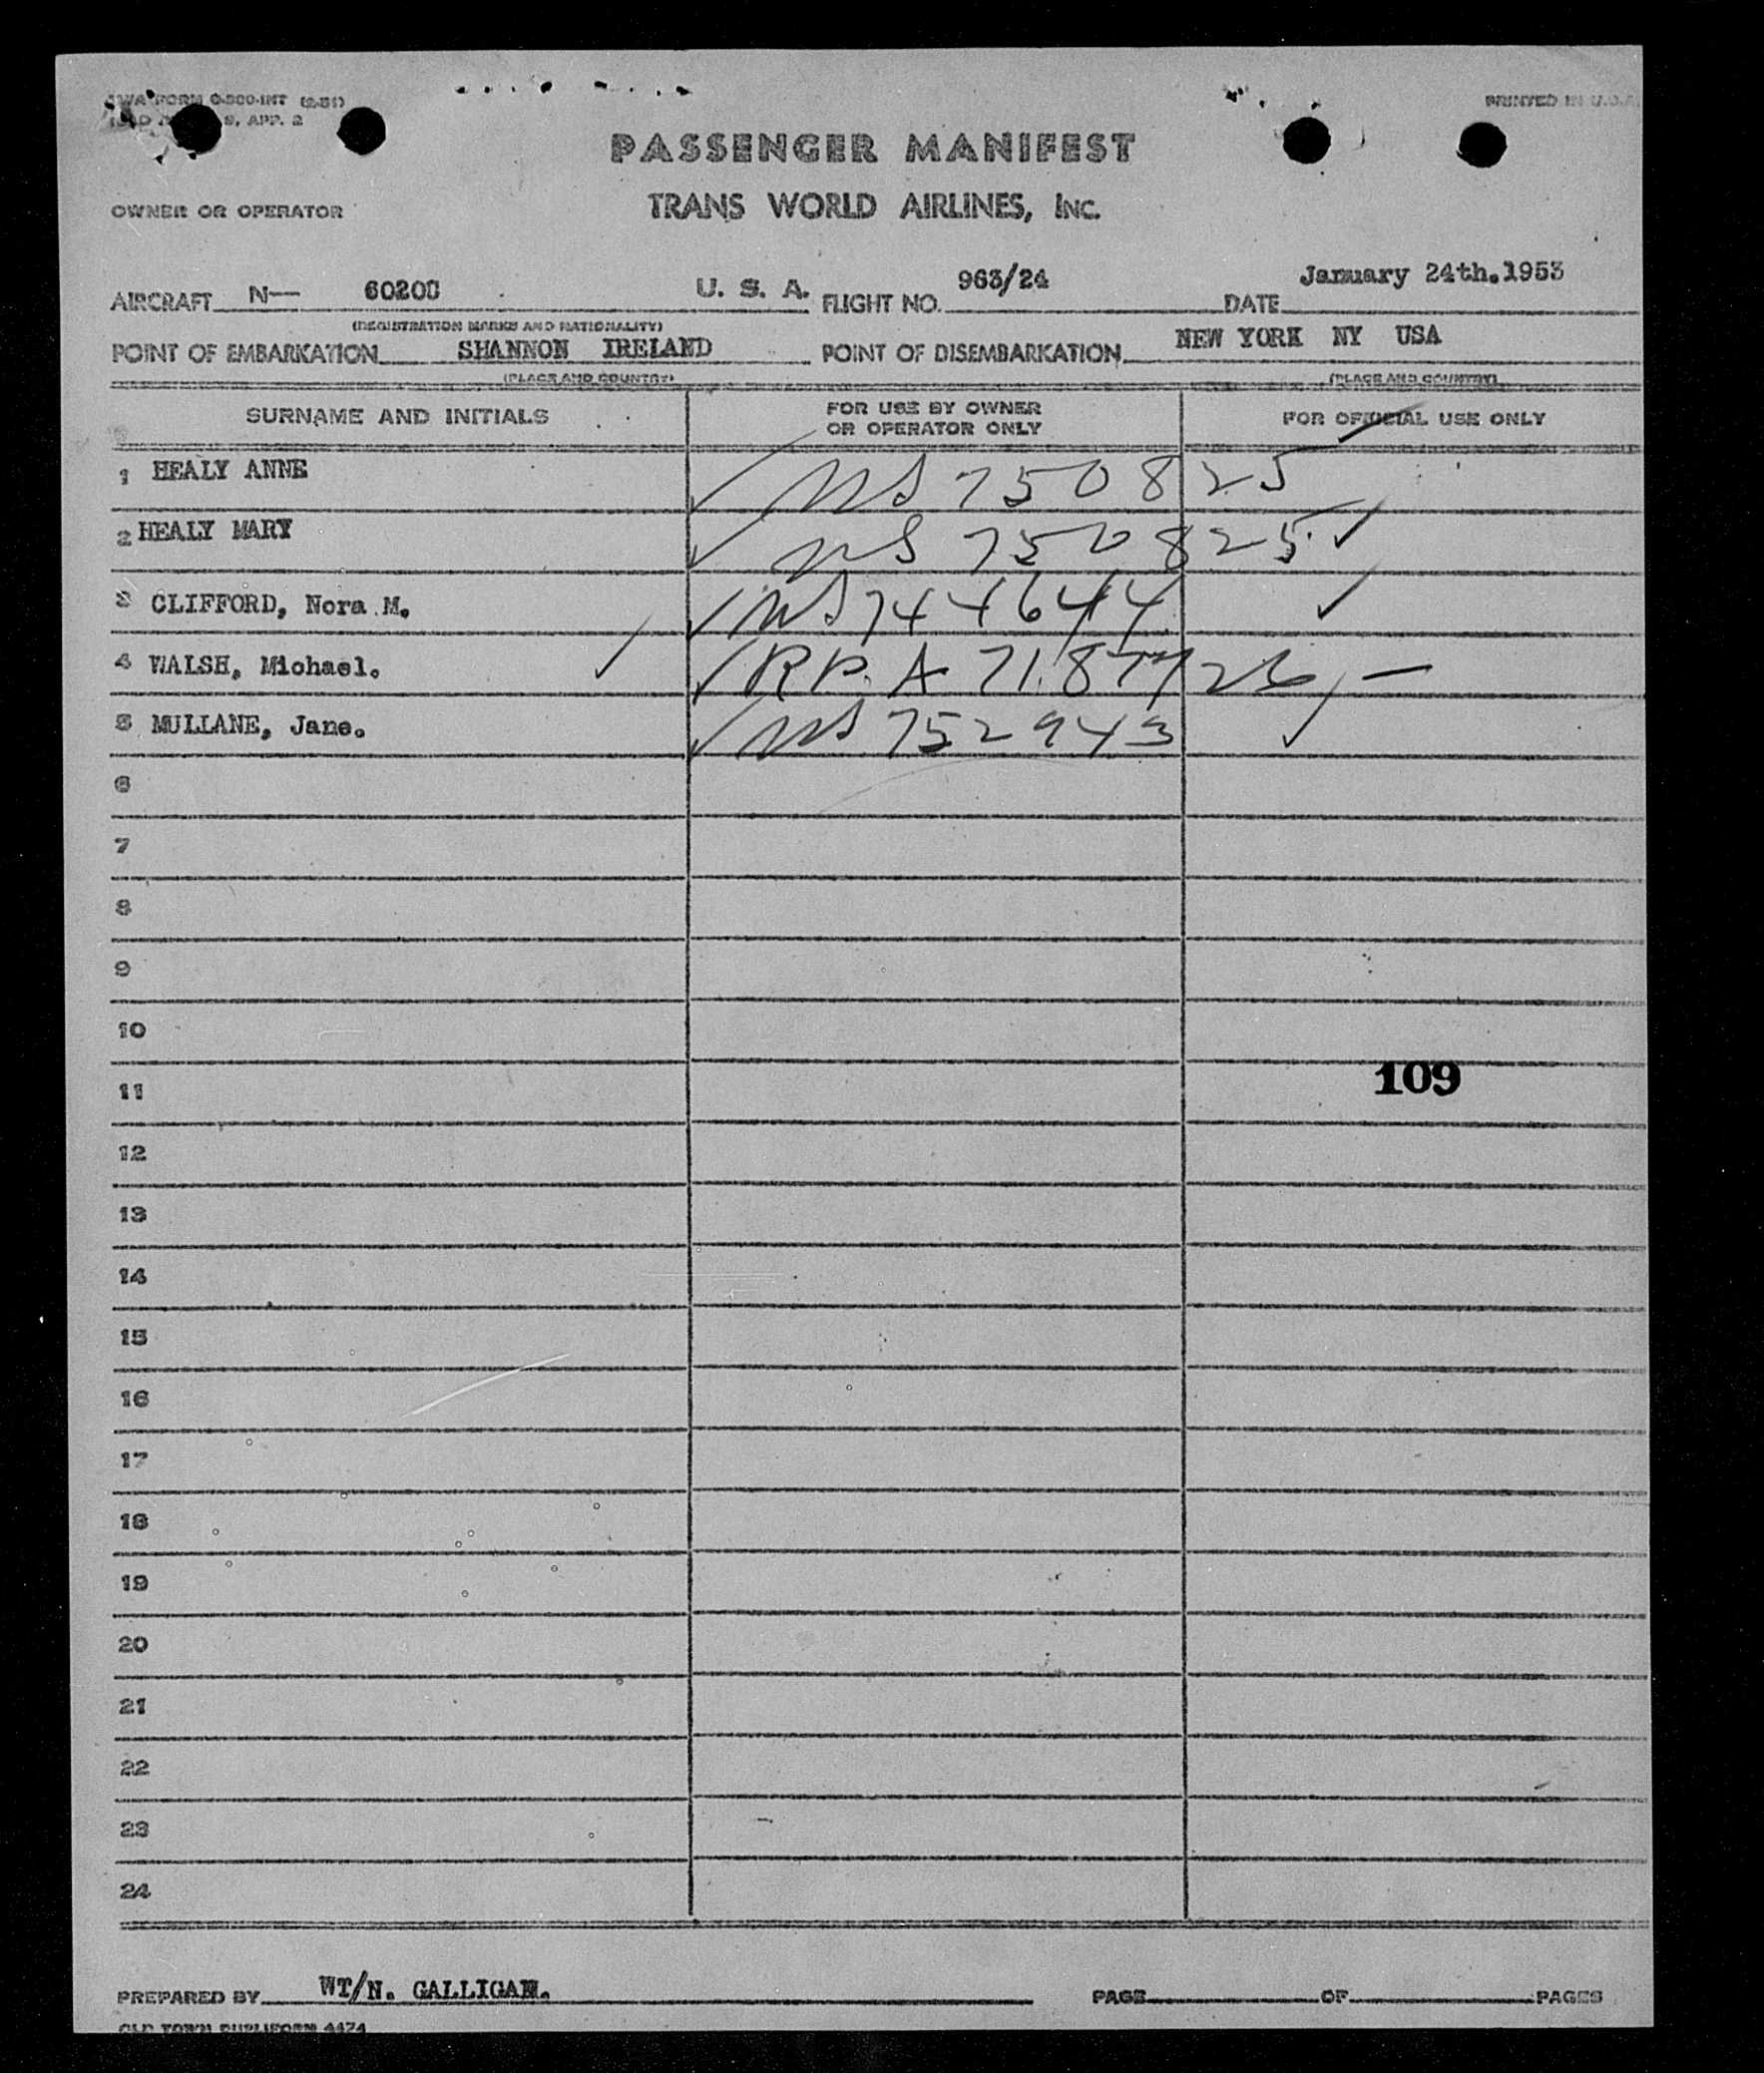 TWA FORM O-500-INT (2-51)
PRINTED IN U.S.A.
9, APP. 2
PASSENGER MANIFEST
OWNER OR OPERATOR
TRANS WORLD AIRLINES, INC.
AIRCRAFT N— 60200 U. S. A. FLIGHT NO. 963/24 DATE January 24th.1953
(REGISTRATION MARKS AND NATIONALITY)
POINT OF EMBARKATION SHANNON IRELAND POINT OF DISEMBARKATION NEW YORK NY USA
(PLACE AND COUNTRY) (PLACE AND COUNTRY)
SURNAME AND INITIALS FOR USE BY OWNER OR OPERATOR ONLY FOR OFFICIAL USE ONLY
1 HEALY ANNE ✓ NS 750825
2 HEALY MARY ✓ NS 750825 ✓
3 CLIFFORD, Nora M. ✓ NS 744644 ✓
4 WALSH, Michael. ✓ ✓ R.P. A 7187726 —
5 MULLANE, Jane. ✓ NS 752943 ✓
6
7
8
9
10
11 109
12
13
14
15
16
17
18
19
20
21
22
23
24
PREPARED BY WT/N. GALLIGAN. PAGE OF PAGES
OLD TOWN DUPLIFORM 4474